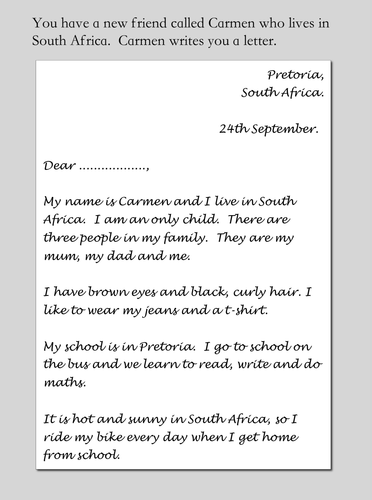 You have a new friend called Carmen who lives in
South Africa.  Carmen writes you a letter.
Pretoria,
South Africa.
24th September.
Dear ..................,
My name is Carmen and I live in South
Africa.  I am an only child.  There are
three people in my family.  They are my
mum, my dad and me.
I have brown eyes and black, curly hair. I
like to wear my jeans and a t-shirt.
My school is in Pretoria.  I go to school on
the bus and we learn to read, write and do
maths.
It is hot and sunny in South Africa, so I
ride my bike every day when I get home
from school.